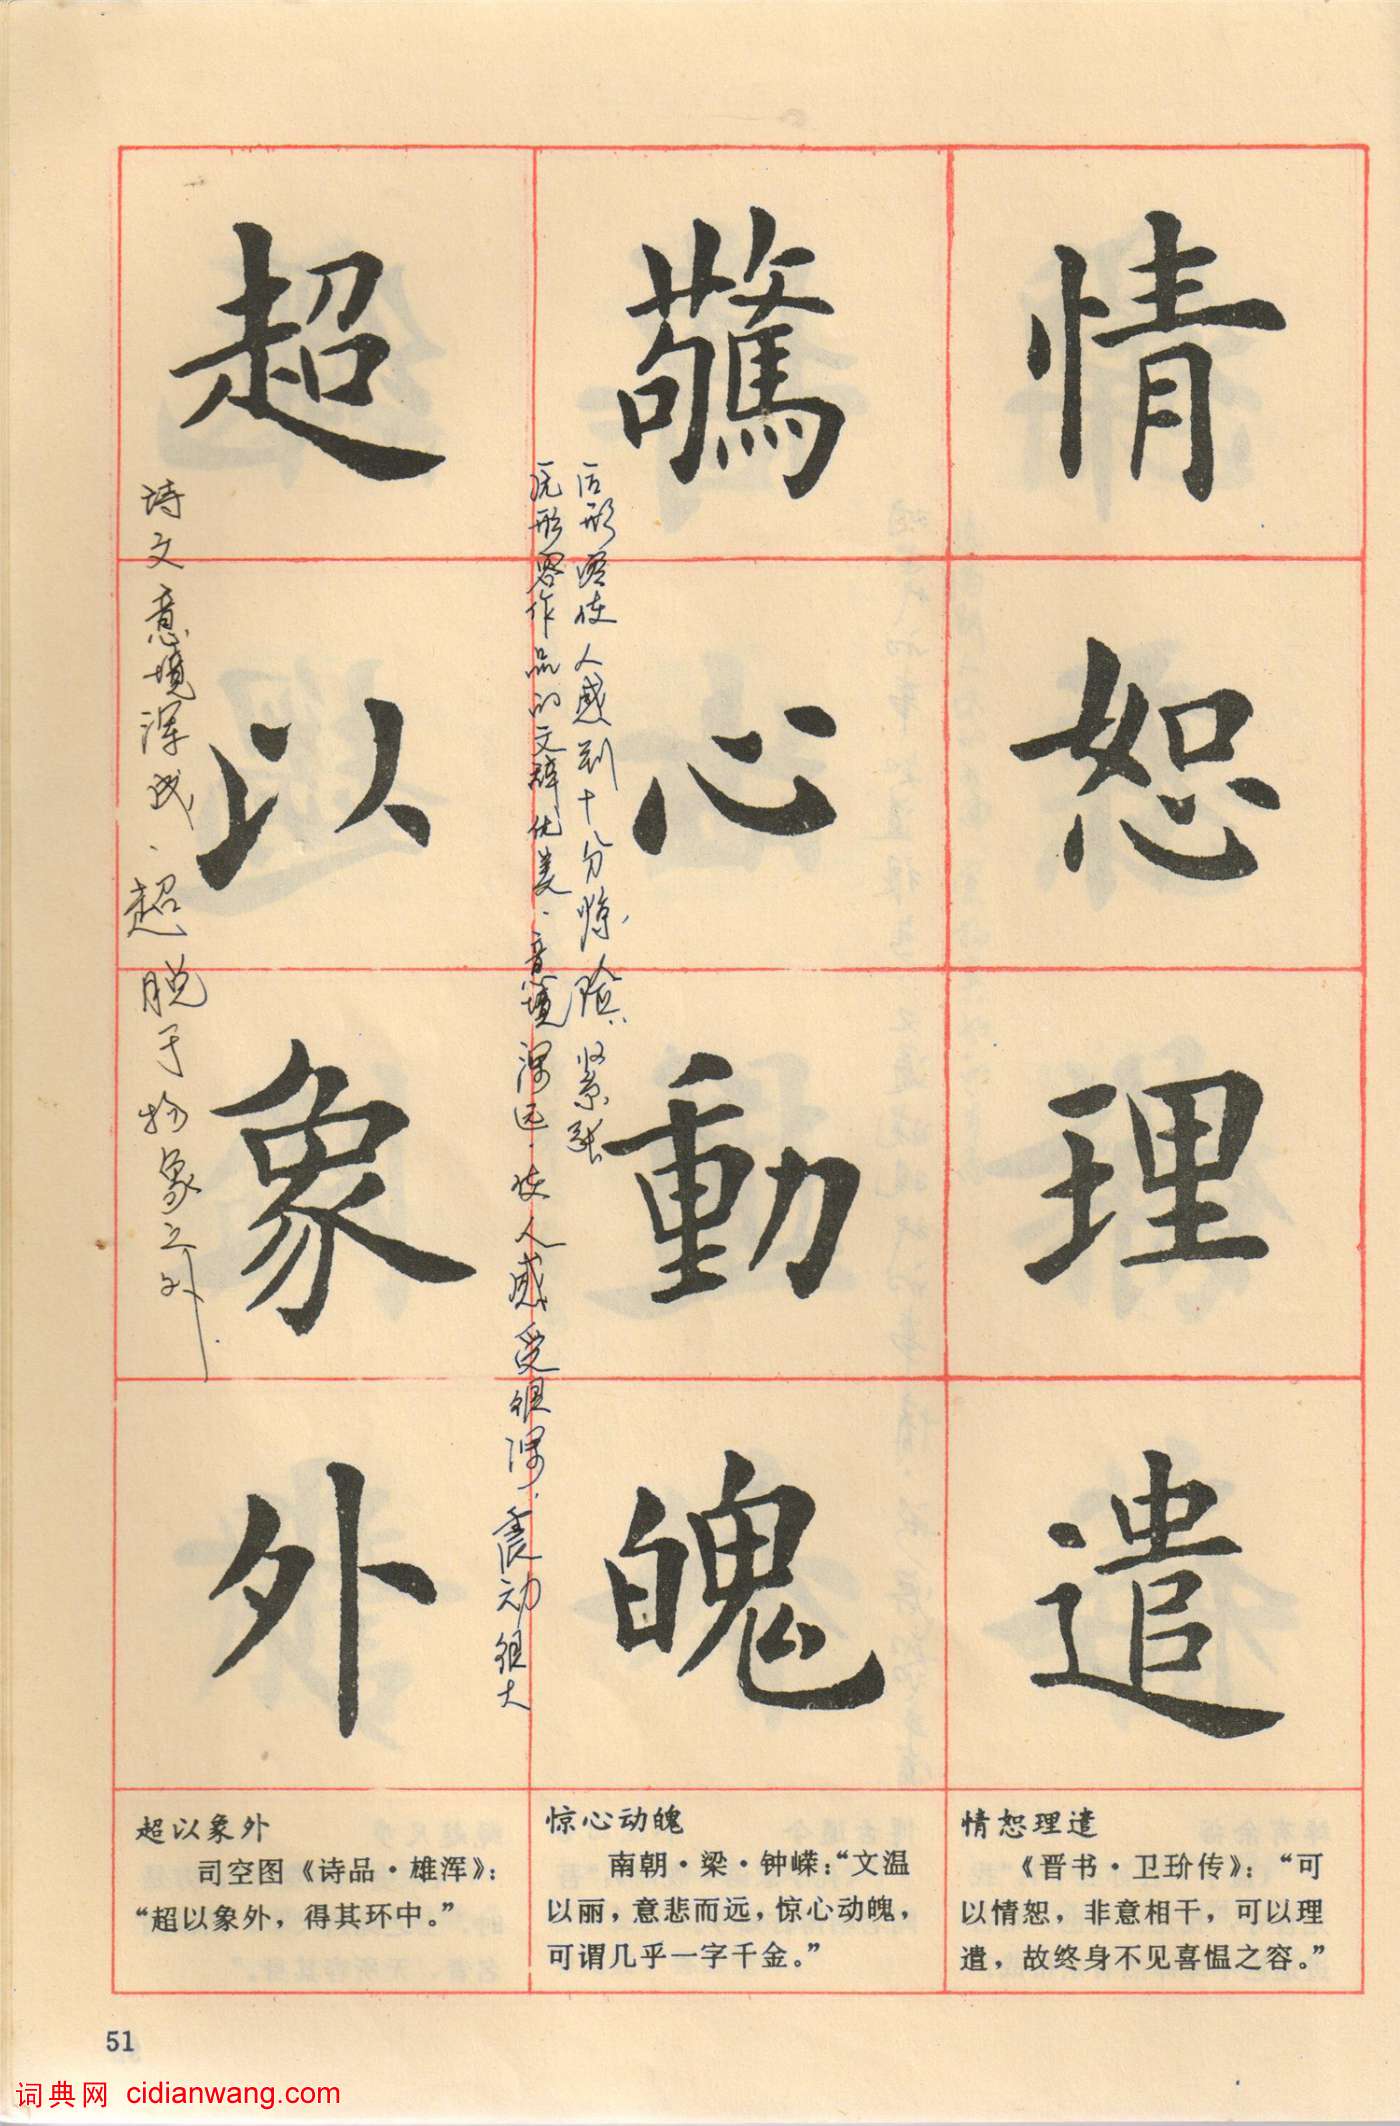 情恕理遣
驚心動魄
后形容使人感到十分惊险、紧张
形容作品的文辞优美、意境深远、使人感受很深、震动很大
超以象外
诗文意境浑成、超脱于物象之外
情恕理遣
《晋书·卫玠传》：“可
以情恕，非意相干，可以理
遣，故终身不见喜愠之容。”
惊心动魄
南朝·梁·钟嵘：“文温
以丽，意悲而远，惊心动魄，
可谓几乎一字千金。”
超以象外
司空图《诗品·雄浑》：
“超以象外，得其环中。”
51
词典网 cidianwang.com